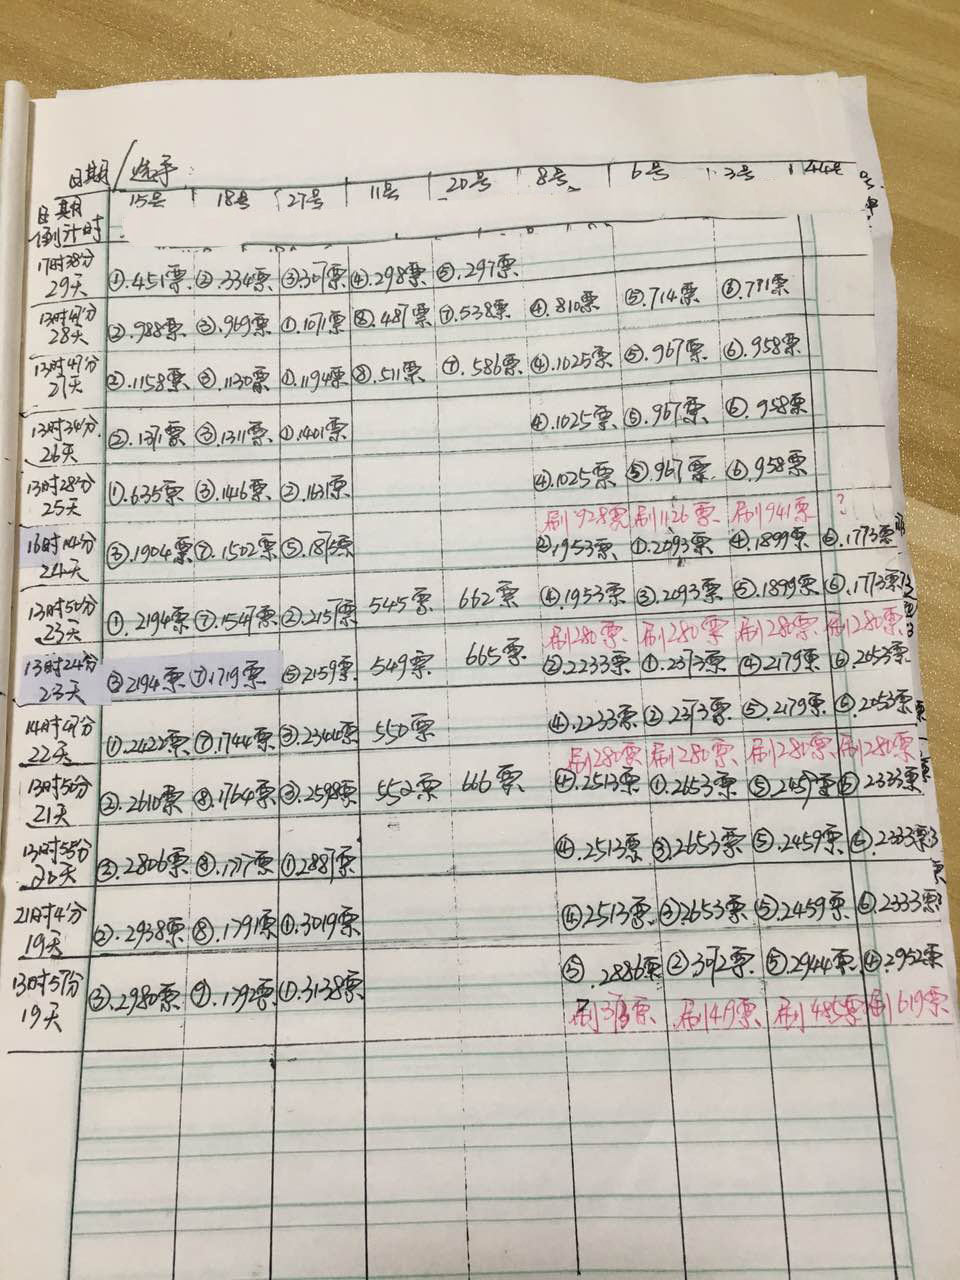 日期/选手:
15号 18号 27号 11号 20号 8号 6号 3号 44号
日期
倒计时
17时38分
29天 ①.451票 ②.334票 ③.307票 ④.298票 ⑤.297票
13时47分 ④.810票 ⑤.714票
28天 ②.988票 ③.969票 ①.1071票 ⑧.487票 ⑦.538票
13时47分
27天 ②.1158票 ③.1130票 ①.1194票 ⑧.511票 ⑦.586票 ④.1025票 ⑤.967票 ⑥.958票
13时34分
26天 ②.1371票 ③.1311票 ①.1401票 ④.1025票 ⑤.967票 ⑥.958票
13时28分
25天 ①.635票 ③.1416票 ②.1631票 ④.1025票 ⑤.967票 ⑥.958票
刷928票 刷1126票 刷941票 ?
16时14分
24天 ③.1904票 ⑦.1502票 ②.1953票 ①.2093票 ④.1899票 ⑥.1773票
13时50分
23天 ①.2194票 ⑦.1547票 ②.2157票 545票 662票 ④.1953票 ③.2093票 ⑤.1899票 ⑥.1773票
刷280票 刷280票 刷280票 刷280票
13时24分
23天 ③2194票 ⑦.1719票 ⑤2159票 549票 665票 ②.2233票 ①.2373票 ④.2179票 ⑥.2053票
14时47分
22天 ①.2422票 ⑦.1744票 ③.2344票 550票 ④.2233票 ②.2373票 ⑤.2179票 ⑥.2053票
刷280票 刷280票 刷280票 刷280票
13时50分
21天 ②.2610票 ⑧.1764票 ③.2598票 552票 666票 ④.2513票 ①.2653票 ⑤.2459票 ⑥.2333票
13时55分
20天 ②.2806票 ⑧.1777票 ①.2887票 ④.2513票 ③.2653票 ⑤.2459票 ⑥.2333票
21时4分
19天 ②.2938票 ⑧.1791票 ①.3019票 ④2513票 ③.2653票 ⑤.2459票 ⑥.2333票
13时57分
19天 ③.2980票 ⑦.1792票 ①.3138票 ⑤.2886票 ②.3072票 ⑤.2944票 ④.2952票
刷373票 刷419票 刷485票 刷619票